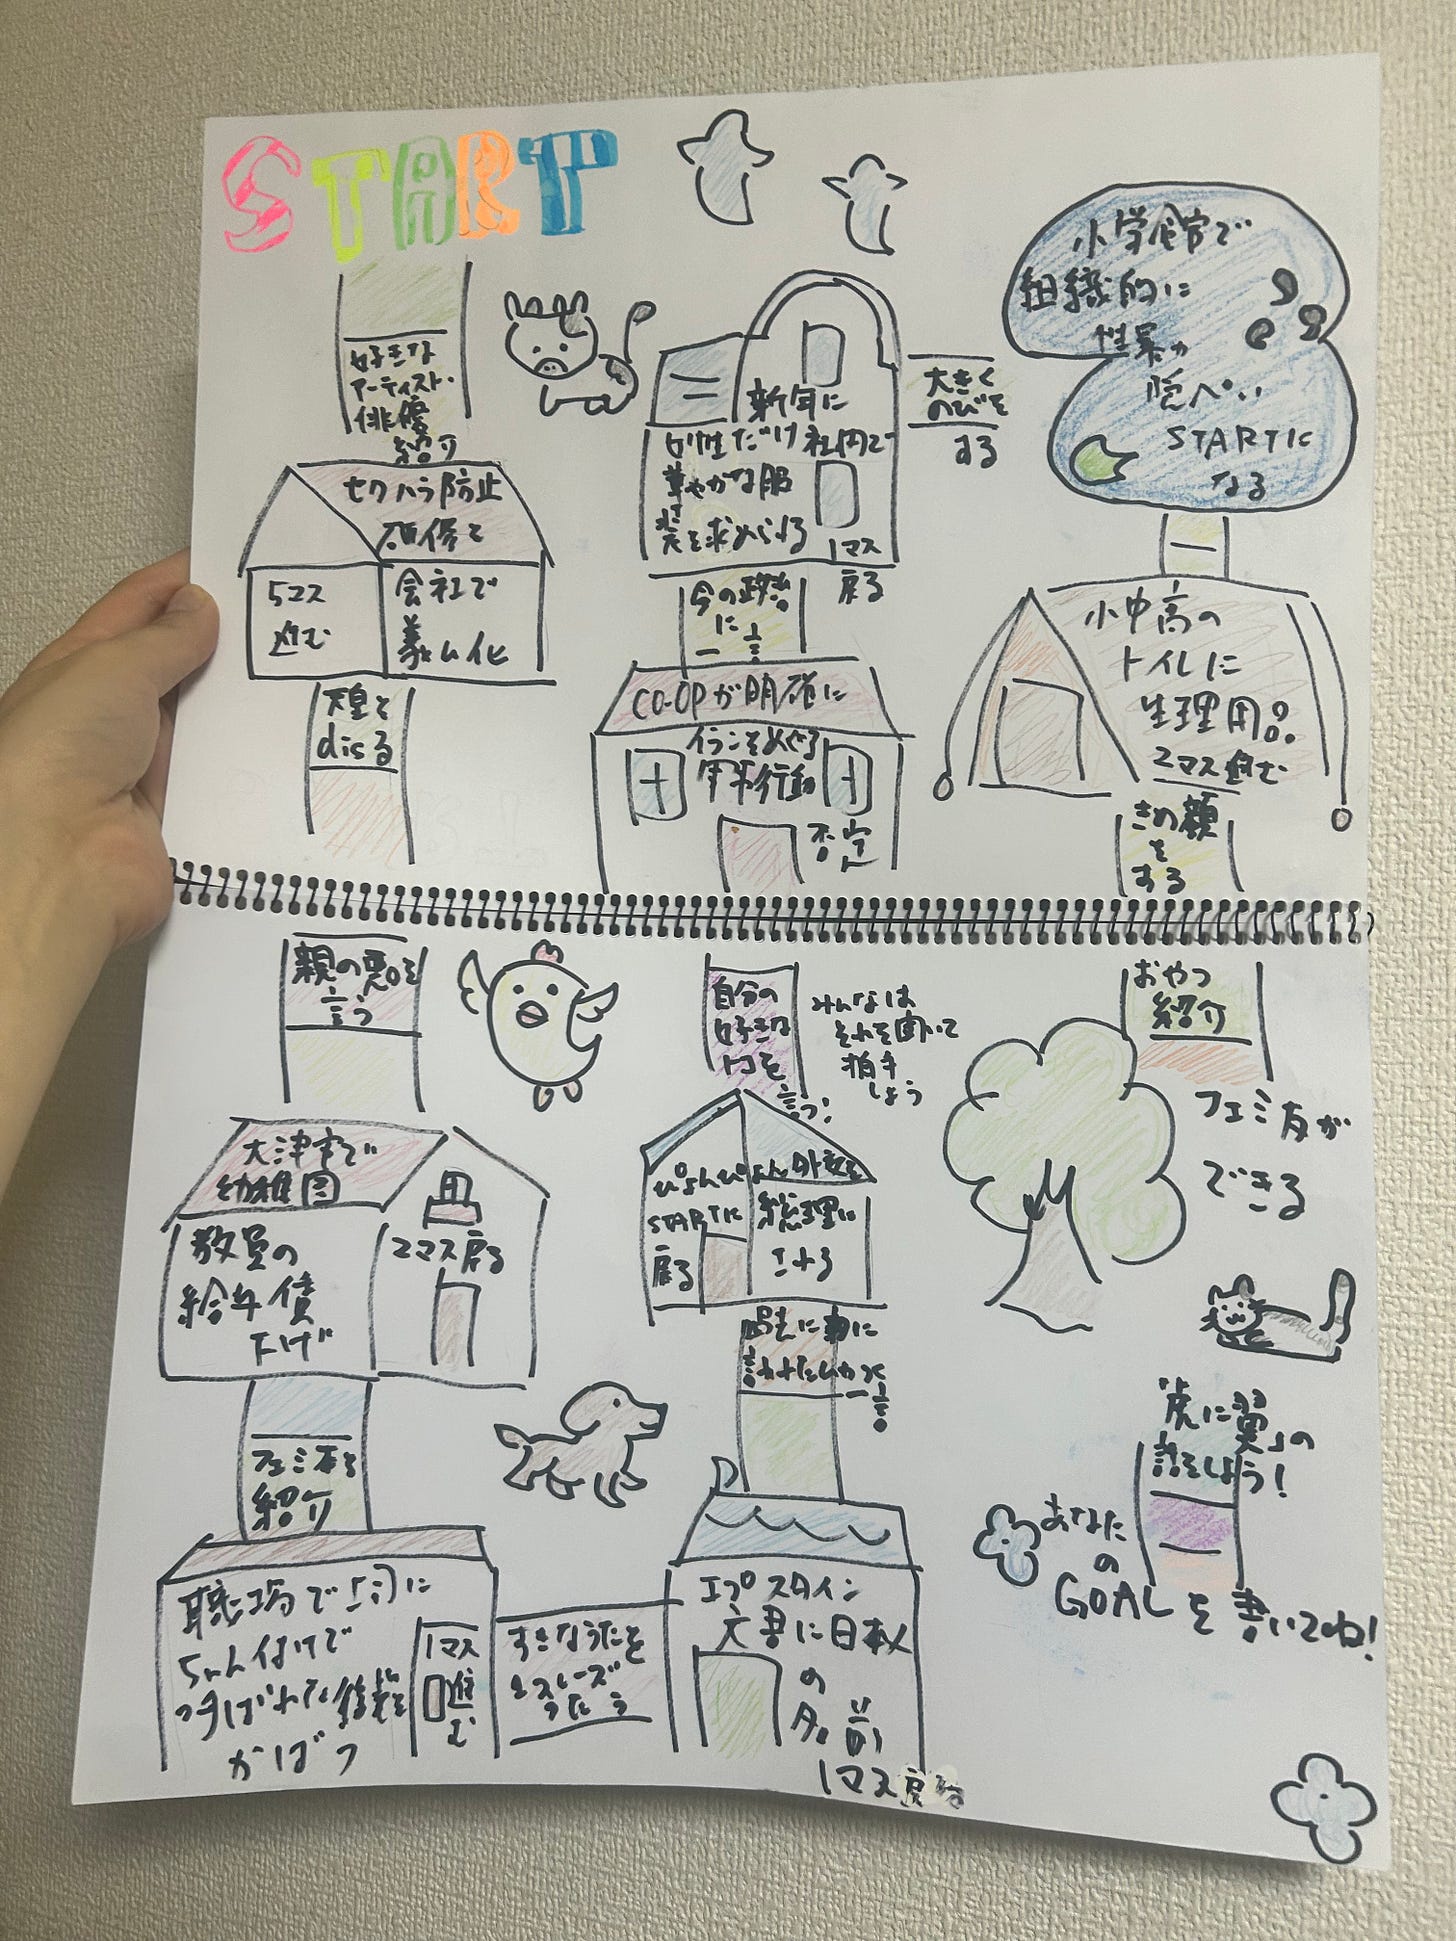 START
好きな
アーティスト・
俳優
紹介
セクハラ防止
研修を
会社で
義ム化
5マス
進む
天皇を
disる
親の悪口を
言う
大津市で
幼稚園
教員の
給与賃
下げ
2マス戻る
フェミ本を
紹介
職場で上司に
ちゃん付けで
よばれた後輩を
かばう
1マス
進む
すきなうたを
1フレーズ
うたう
エプスタイン
文書に日本人
の
名前
1マス戻る
過去に
言われた
一言
ぴょんぴょん外交を
総理に
STARTに
戻る
自分の
好きな
口を
言う!
みんなは
それを聞いて
拍手
しよう
CO-OPが明確に
イランをめぐる
軍事行動
否定
今の政治
に
一言
新年に
女性だけ社内で
華やかな服
装を求められる
1マス
戻る
大きく
のびを
する
小学館で
組織的に
性暴力
隠ぺい
STARTに
なる
小中高の
トイレに
生理用品
2マス進む
きめ顔
を
する
おやつ
紹介
フェミ友が
できる
「虎に翼」の
話をしよう!
あなた
の
GOALを書いてね!